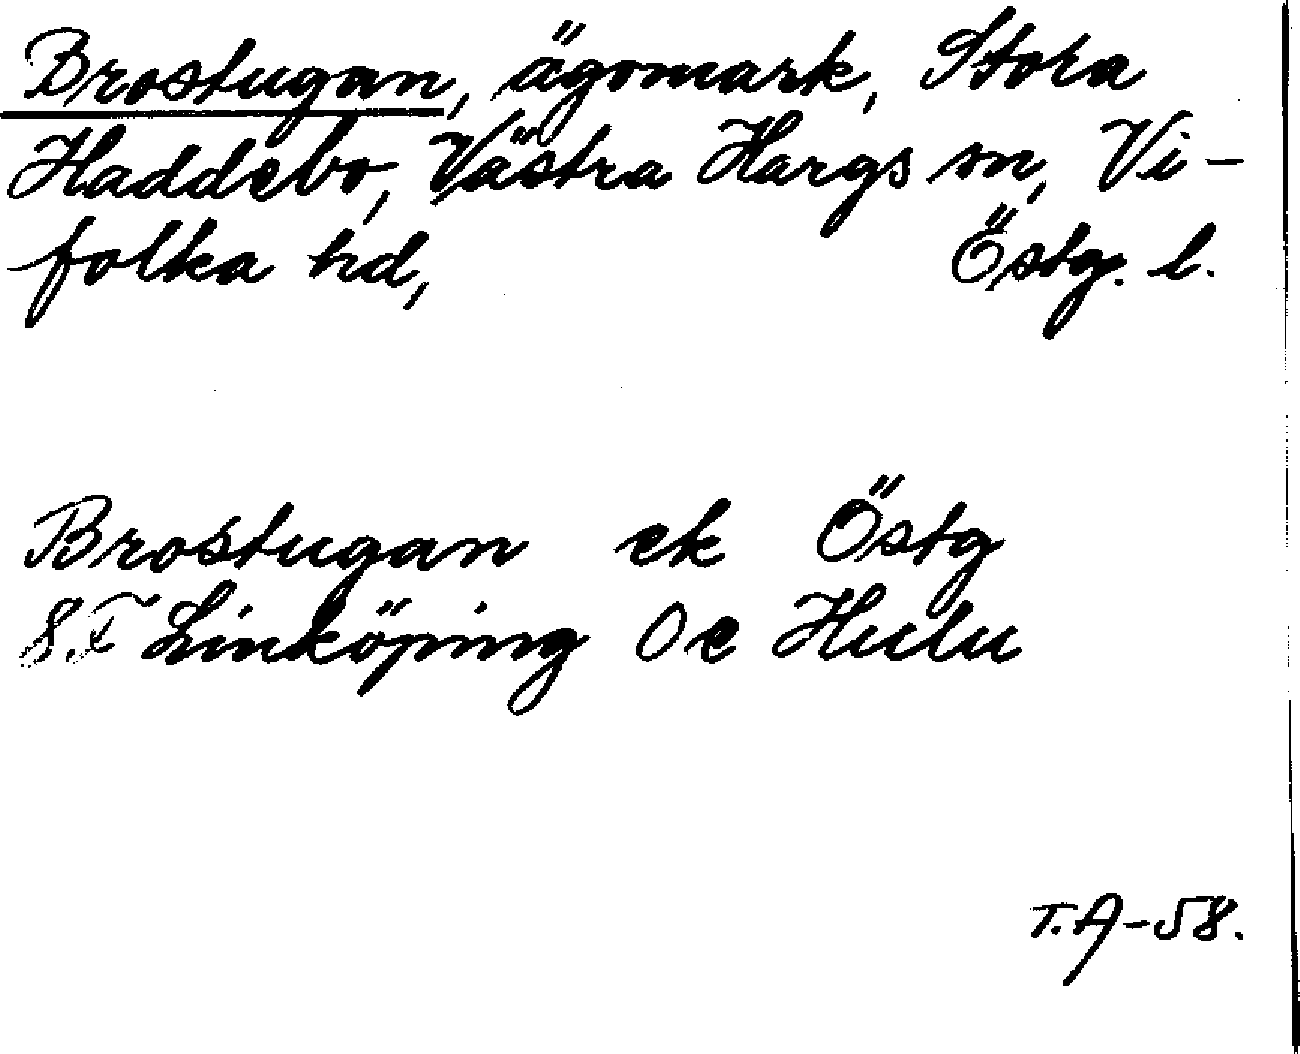 Brostugan, ägomark, Stora
Haddebo, Västra Hargs sn, Vi-
folka hd, Östg. l.
Brostugan ek Östg
8F Linköping Oe Hulu
T.A-58.